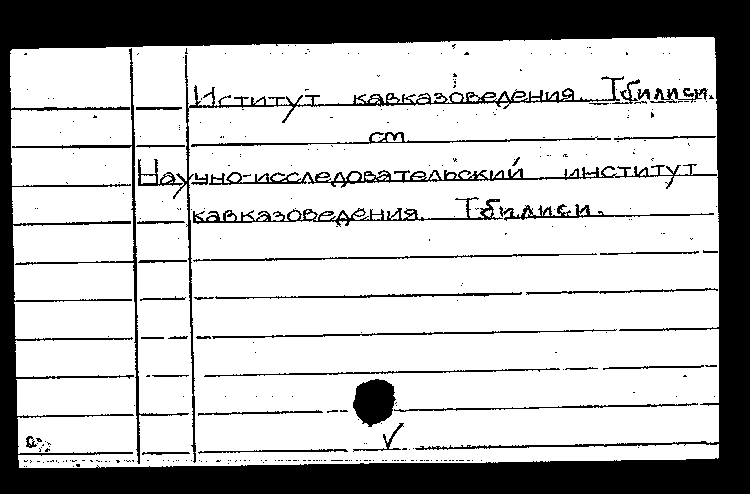 Иститут кавказоведения. Тбилиси.
ст
Научно-исследовательский институт
кавказоведения. Тбилиси.